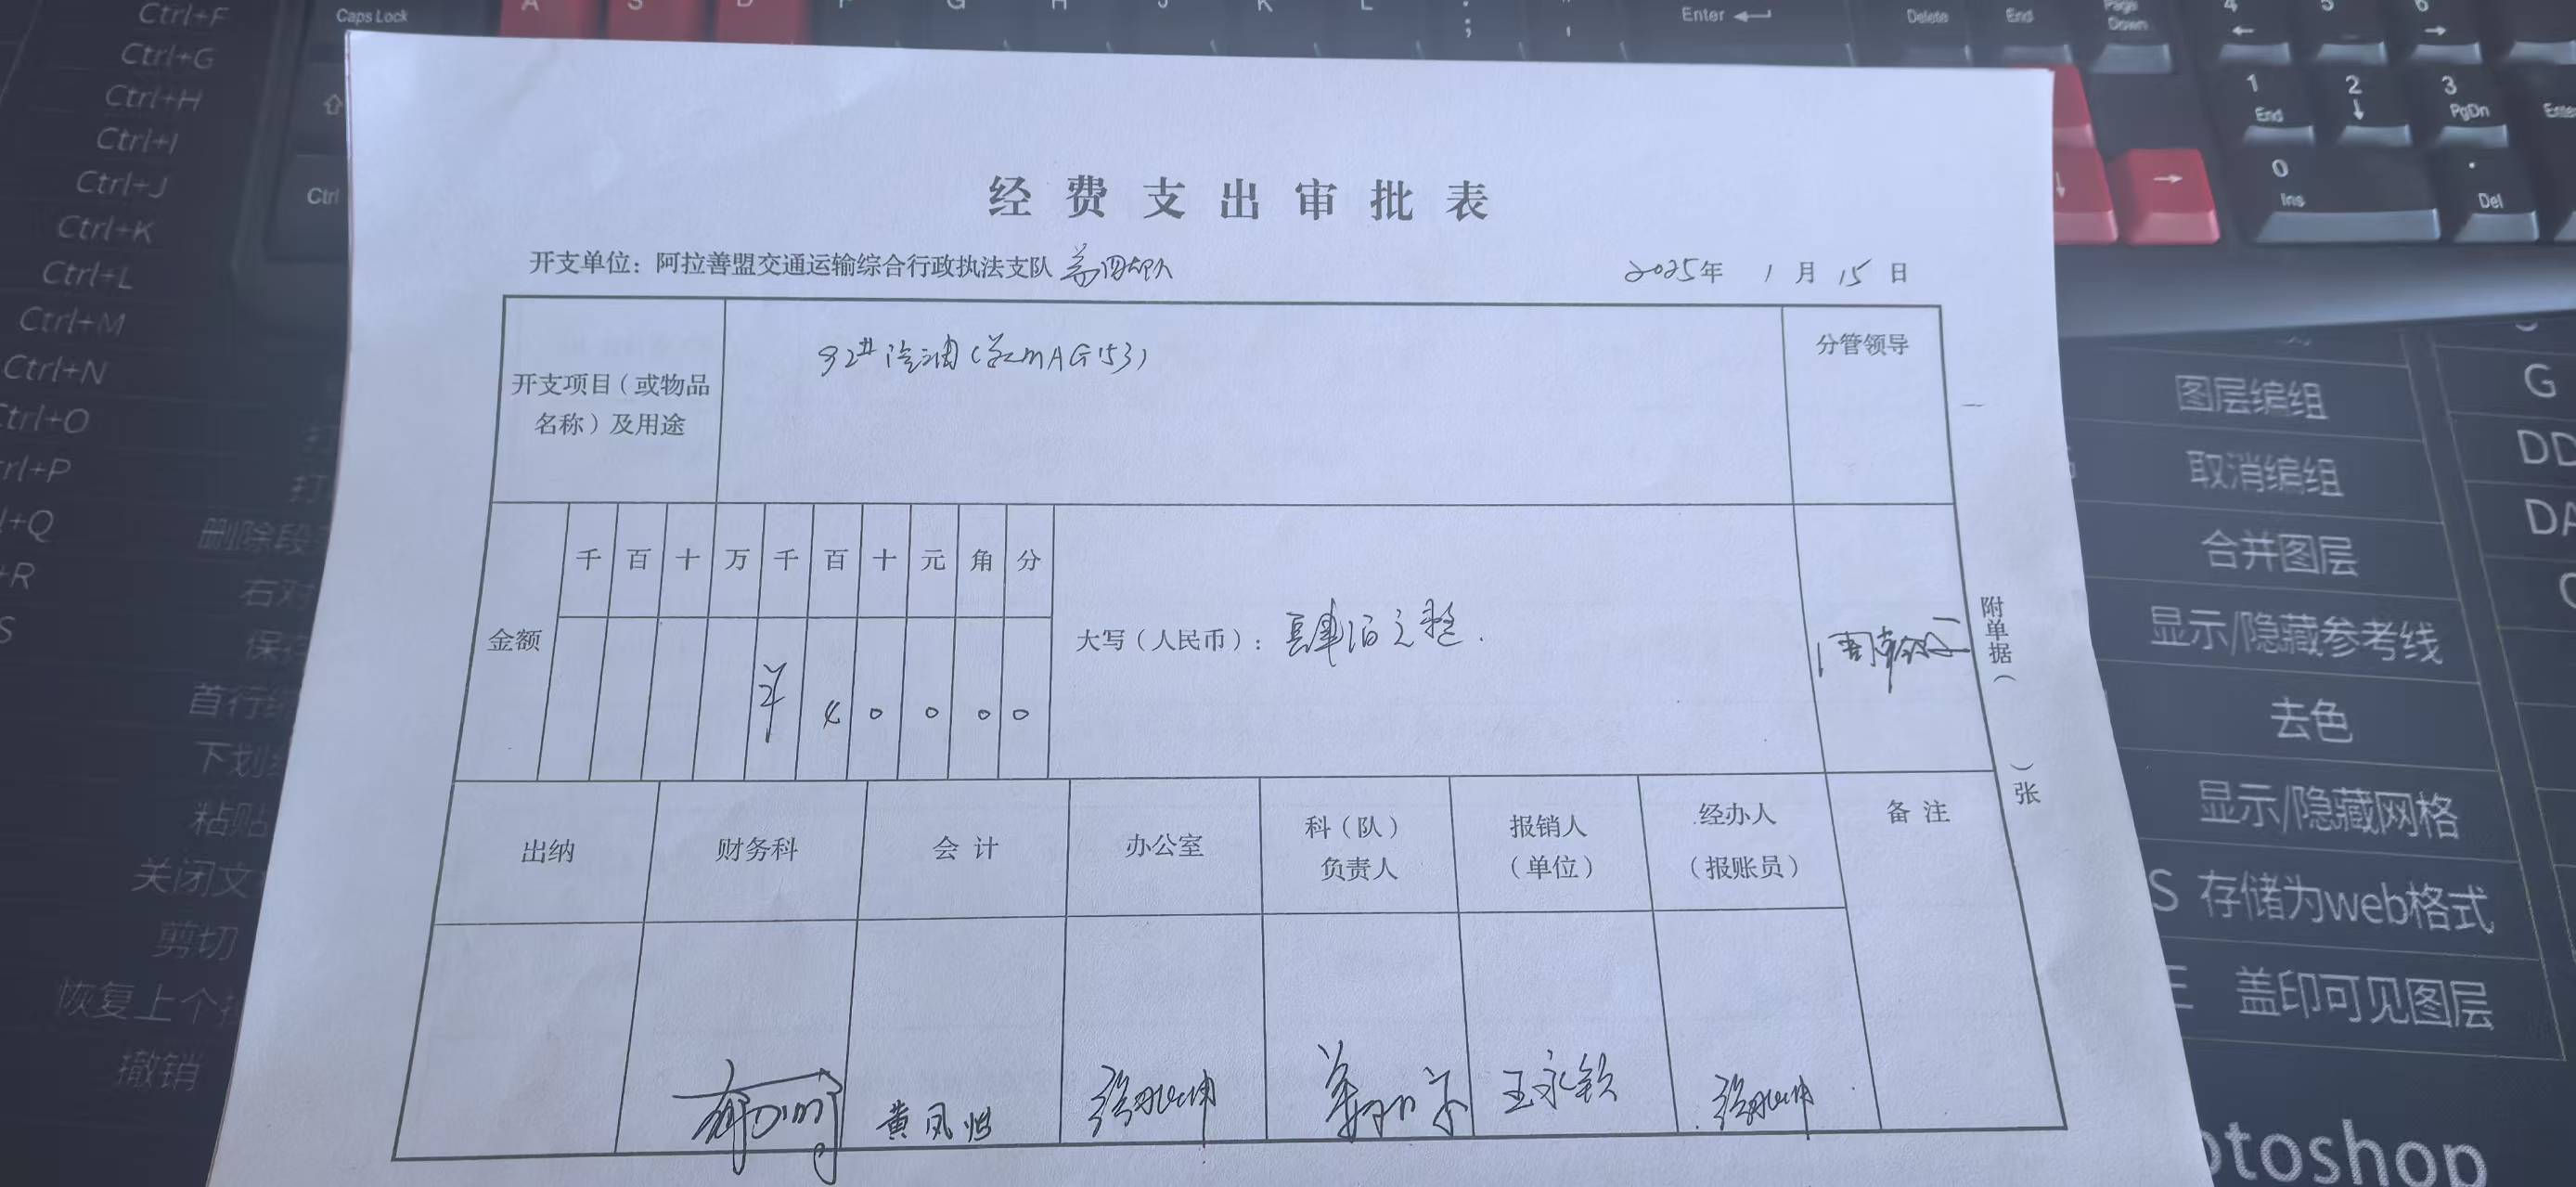 Ctrl+F
Ctrl+G
Ctrl+H
Ctrl+I
Ctrl+J
Ctrl+K
Ctrl+L
Ctrl+M
Ctrl+N
Ctrl+O
Ctrl+P
Caps Lock
A S D F G H J K L
Ctrl
Enter
Delete
End
Page Down
4 5 6
1 2 3
End
PgDn
0
Ins
Del
经费支出审批表
开支单位：阿拉善盟交通运输综合行政执法支队
2025年 1月 15日
开支项目（或物品名称）及用途
92#汽油（蒙MAG153）
分管领导
金额
千 百 十 万 千 百 十 元 角 分
¥ 4 0 0 0 0
大写（人民币）：肆佰元整.
附单据（ ）张
出纳
财务科
会计
办公室
科（队）负责人
报销人（单位）
经办人（报账员）
备注
黄凤
王永钦
删除段
右对
保存
首行
下划
粘贴
关闭文
剪切
恢复上个
撤销
图层编组
取消编组
合并图层
显示/隐藏参考线
去色
显示/隐藏网格
存储为web格式
盖印可见图层
G
DD
otoshop